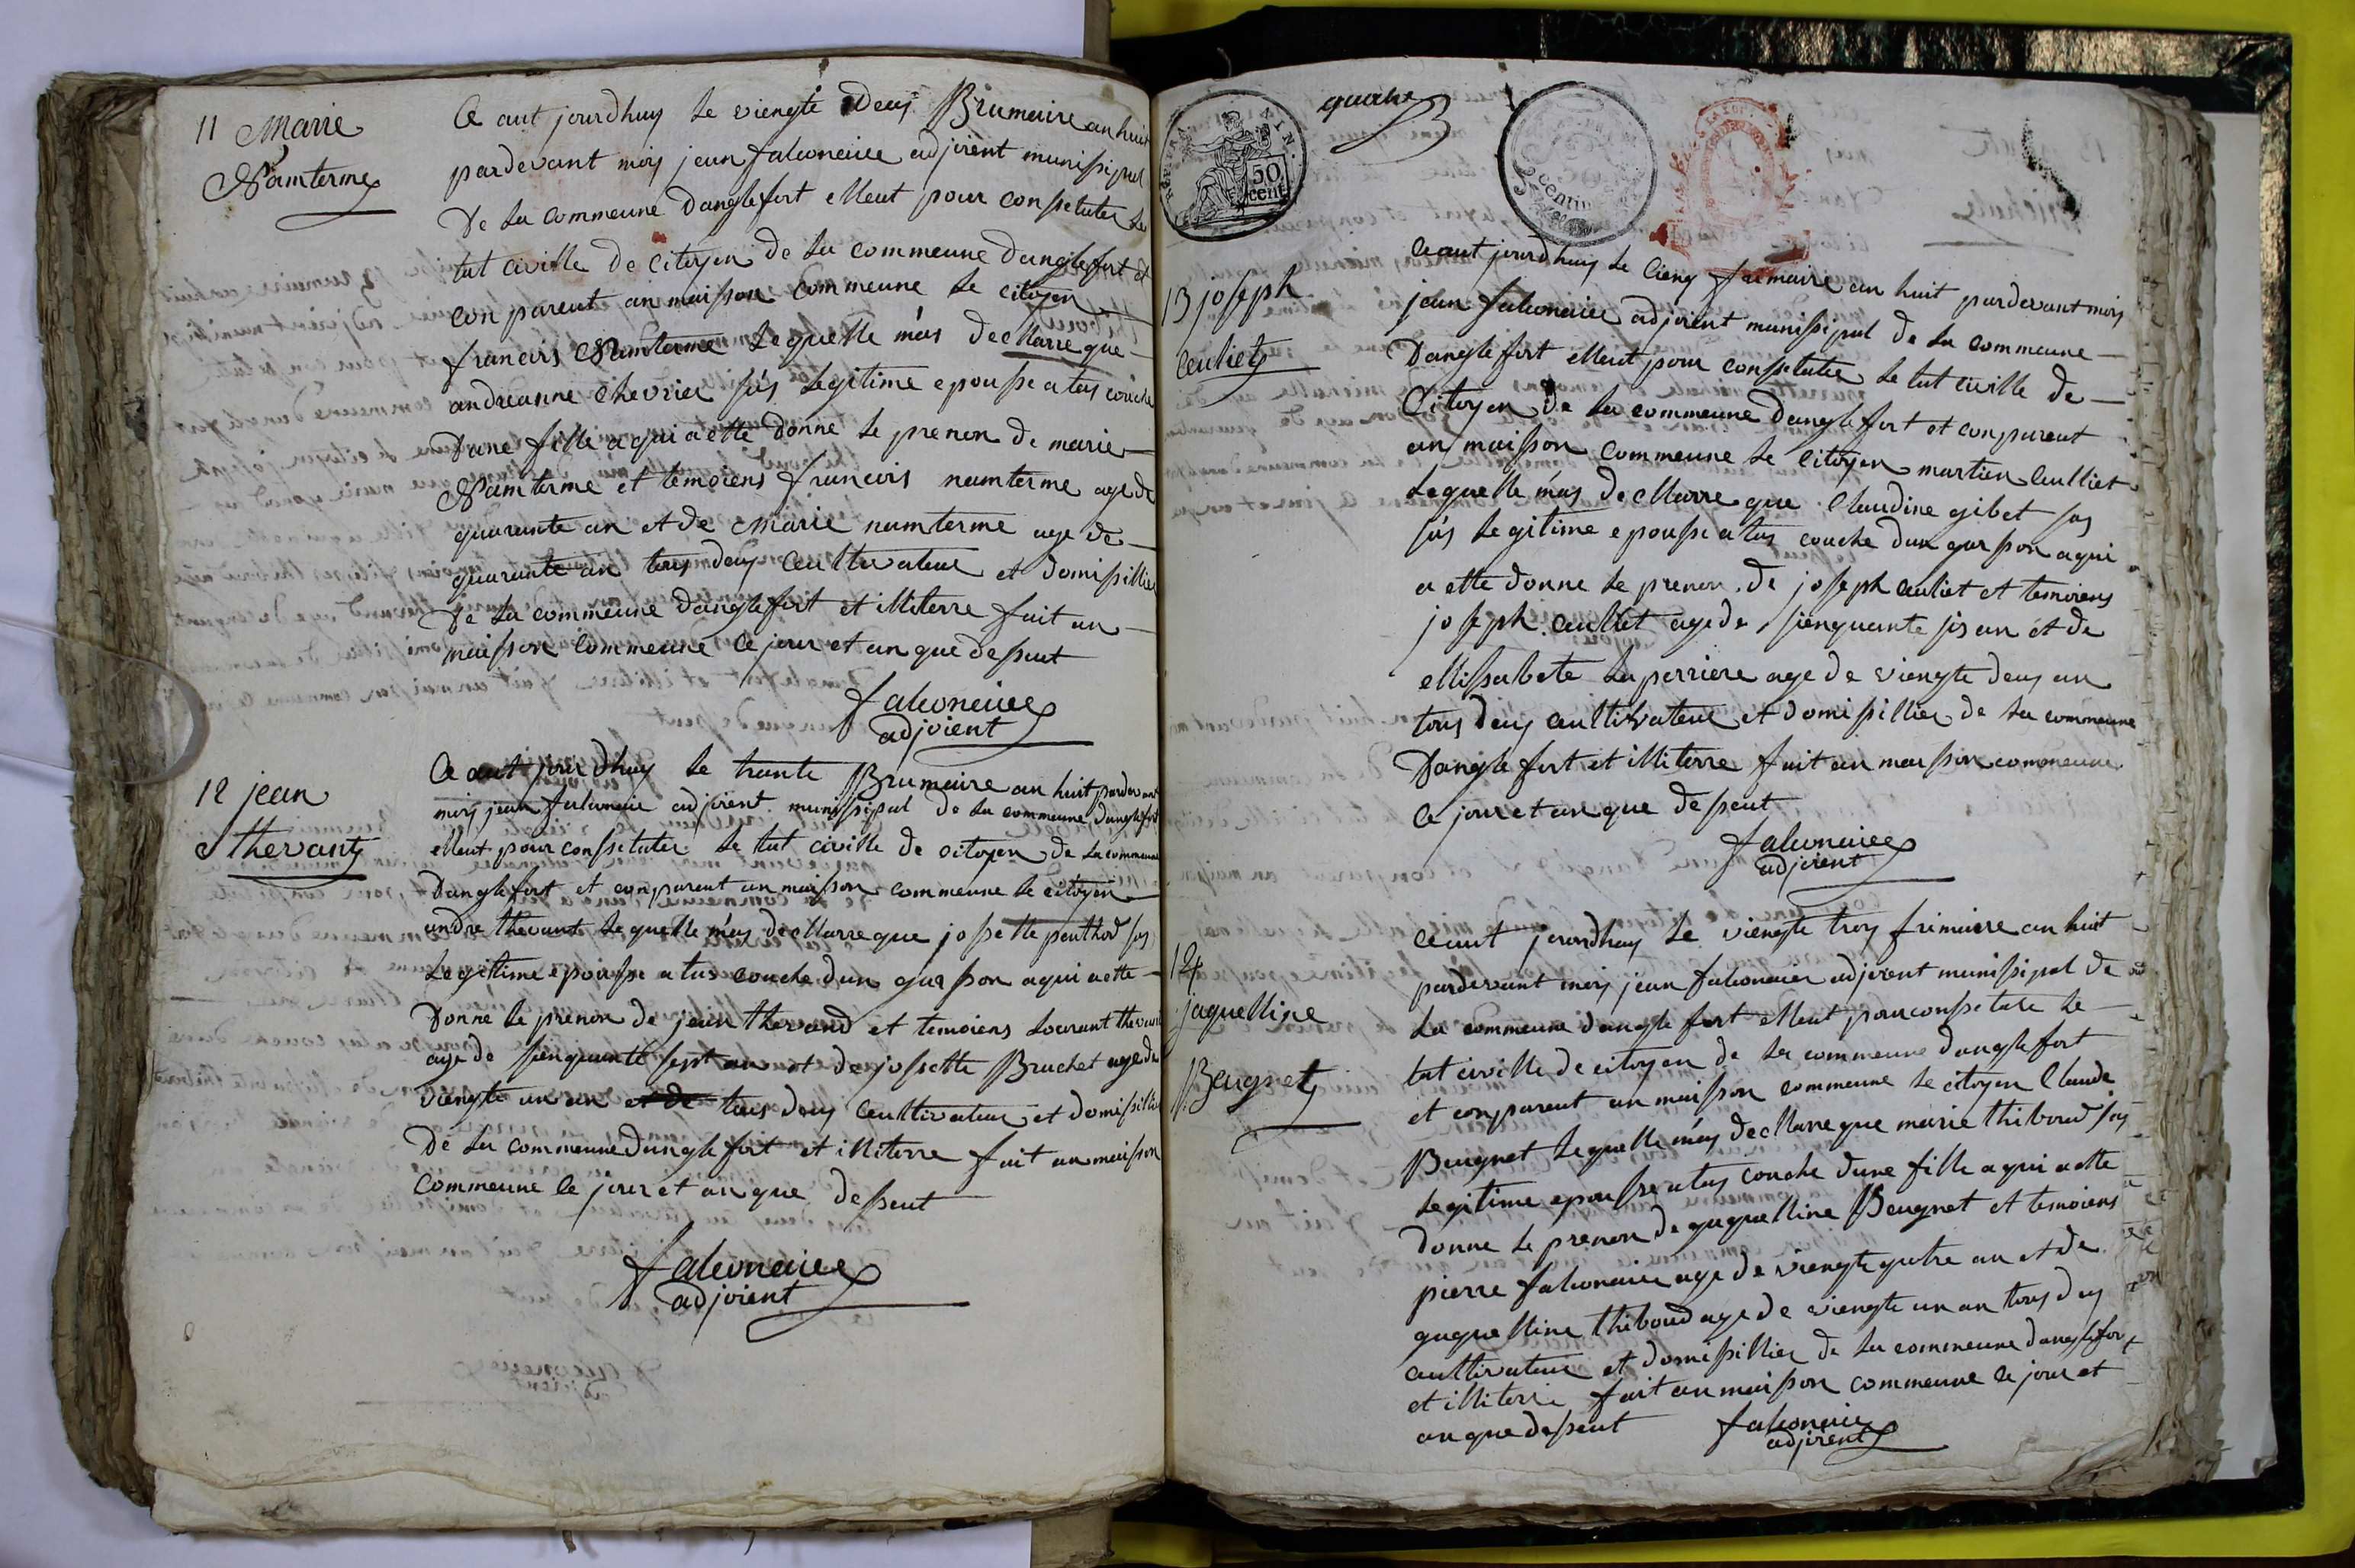 11 Marie
Namterme
Ce aut jourdhuy le viengte Deus Brumaire an huit
pardevant moy jean falconaier adjoient munissipal
De la commeune Danglefort elleut pour conssetuter le
tat civille De citoyen de la commeune danglefort et
conparent an maisson commeune le citoyen
francois Namterme lequelle m'as decllarre que
andreanne chevrier sas legitime epousse a tas couche
Dune fille a qui a ette Donne le prenon De marie
Namterme et temoiens francois namterme age de
quarante an et de marie namterme age de
quarante an tous deus ceultivateur et domissillier
De la commeune danglefort et illiterre fait an
maisson commeune ce jour et an que desseut
falconaier
adjoient
12 jean
thevant
Ce aut jourdhuy le trante Brumaire an huit pardevant
moy jean falconaie adjoient munissipal de la commeune danglefort
elleut pour conssetuter le tat civille de citoyen de la commeune
Danglefort et conparent an maisson commeune le citoyen
andre thevant lequelle m'as decllarre que jossette peuthod sas
legitime epousse a tas couche dun garsson a qui a ette
Donne le prenon de jean thevand et temoiens lourant thevant
age de sienquante sept an et de jossette Bruchet age de
viengte un an et de tous deus ceultivateur et domissillier
De la commeune danglefort et illiterre fait an maisson
commeune ce jour et an que desseut
falconaier
adjoient
REP. FRA. TIN.
50
cent.
quatre
centim
13 joseph
ceuliet
Ce aut jourdhuy le cienq frimaire an huit pardevant moy
jean falconaier adjoient munissipal de la commeune
Danglefort elleut pour conssetuter le tat civille de
Citoyen De la commeune danglefort et conparent
an maisson commeune le citoyen martien ceulliet
lequelle m'as decllarre que Claudine gibet sas
sas legitime epousse a tas couche dun garsson a qui
a ette donne le prenon de joseph ceuliet et temoiens
joseph ceulliet age de sienquante sis an et de
ellissabete laperriere age de viengte deus an
tous deus ceultivateur et domissillier de la commeune
Danglefort et illiterre fait an maisson commeune
ce jour et an que desseut
falconaier
adjoient
14
jaquelline
Beugnet
Ce aut jourdhuy le viengte troy frimaire an huit
pardevant moy jean falconaier adjoient munissipal de
la commeune danglefort elleut pour conssetute le
tat civille de citoyen de la commeune danglefort
et conparent an maisson commeune le citoyen Claude
Beugnet lequelle m'as decllarre que marie thiboud sas
legitime epousse a tas couche dune fille a qui a ette
donne le prenon de gaquelline Beugnet et temoiens
pierre falconaier age de viengte quatre an et de
gaquelline thiboud age de viengte un an tous deus
ceultivateur et domissillier de la commeune danglefort
et illiterre fait an maisson commeune ce jour et
an que desseut
falconaier
adjoient